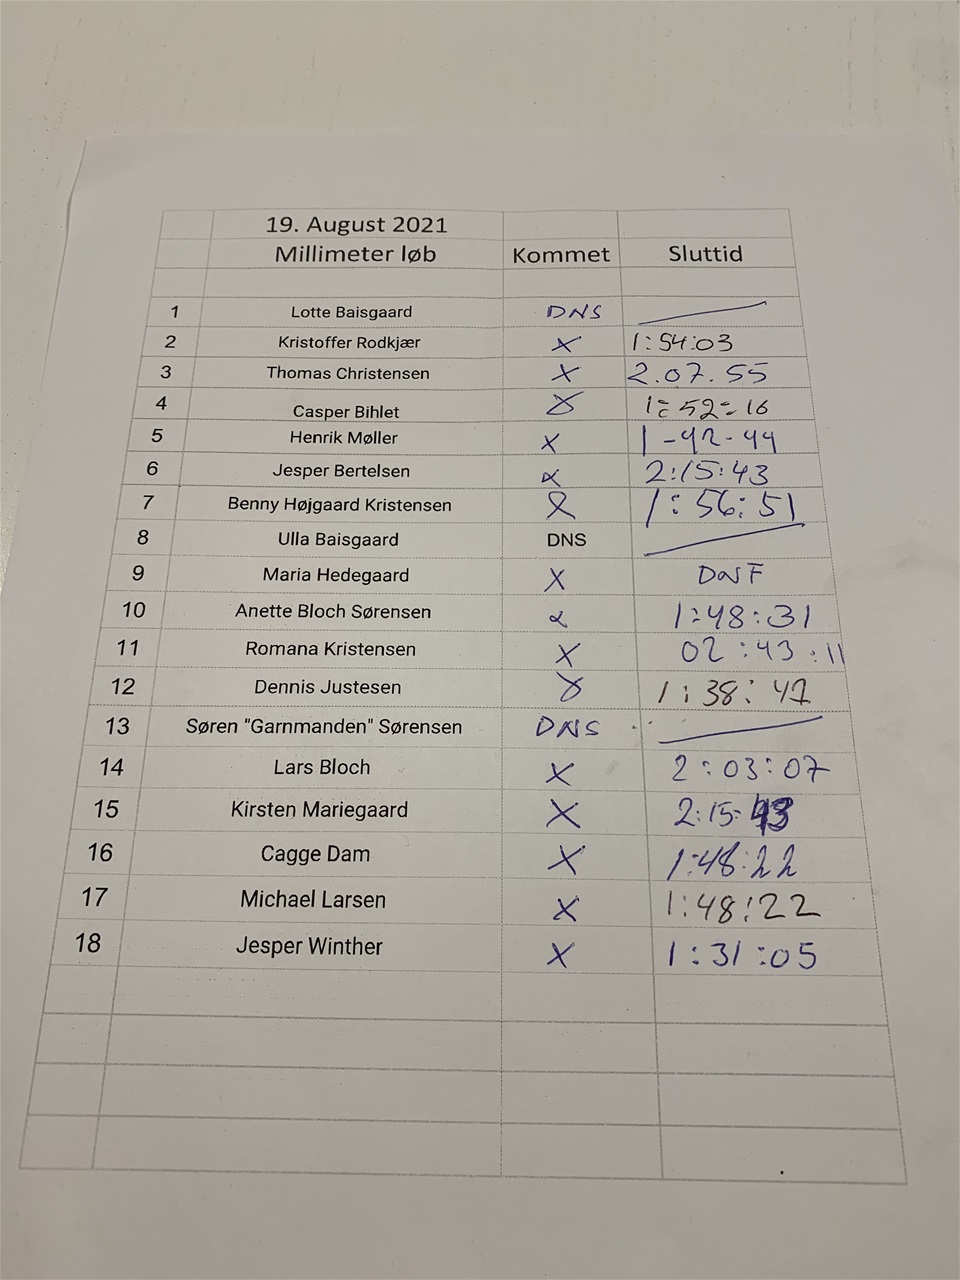 19. August 2021
Millimeter løb Kommet Sluttid
1 Lotte Baisgaard DNS
2 Kristoffer Rodkjær X 1:54:03
3 Thomas Christensen X 2.07.55
4 Casper Bihlet X 1=52=16
5 Henrik Møller X 1-42-44
6 Jesper Bertelsen X 2:15:43
7 Benny Højgaard Kristensen X 1:56:51
8 Ulla Baisgaard DNS
9 Maria Hedegaard X DNF
10 Anette Bloch Sørensen X 1:48:31
11 Romana Kristensen X 02:43:11
12 Dennis Justesen X 1:38:41
13 Søren "Garnmanden" Sørensen DNS
14 Lars Bloch X 2:03:07
15 Kirsten Mariegaard X 2:15:43
16 Cagge Dam X 1:48:22
17 Michael Larsen X 1:48:22
18 Jesper Winther X 1:31:05